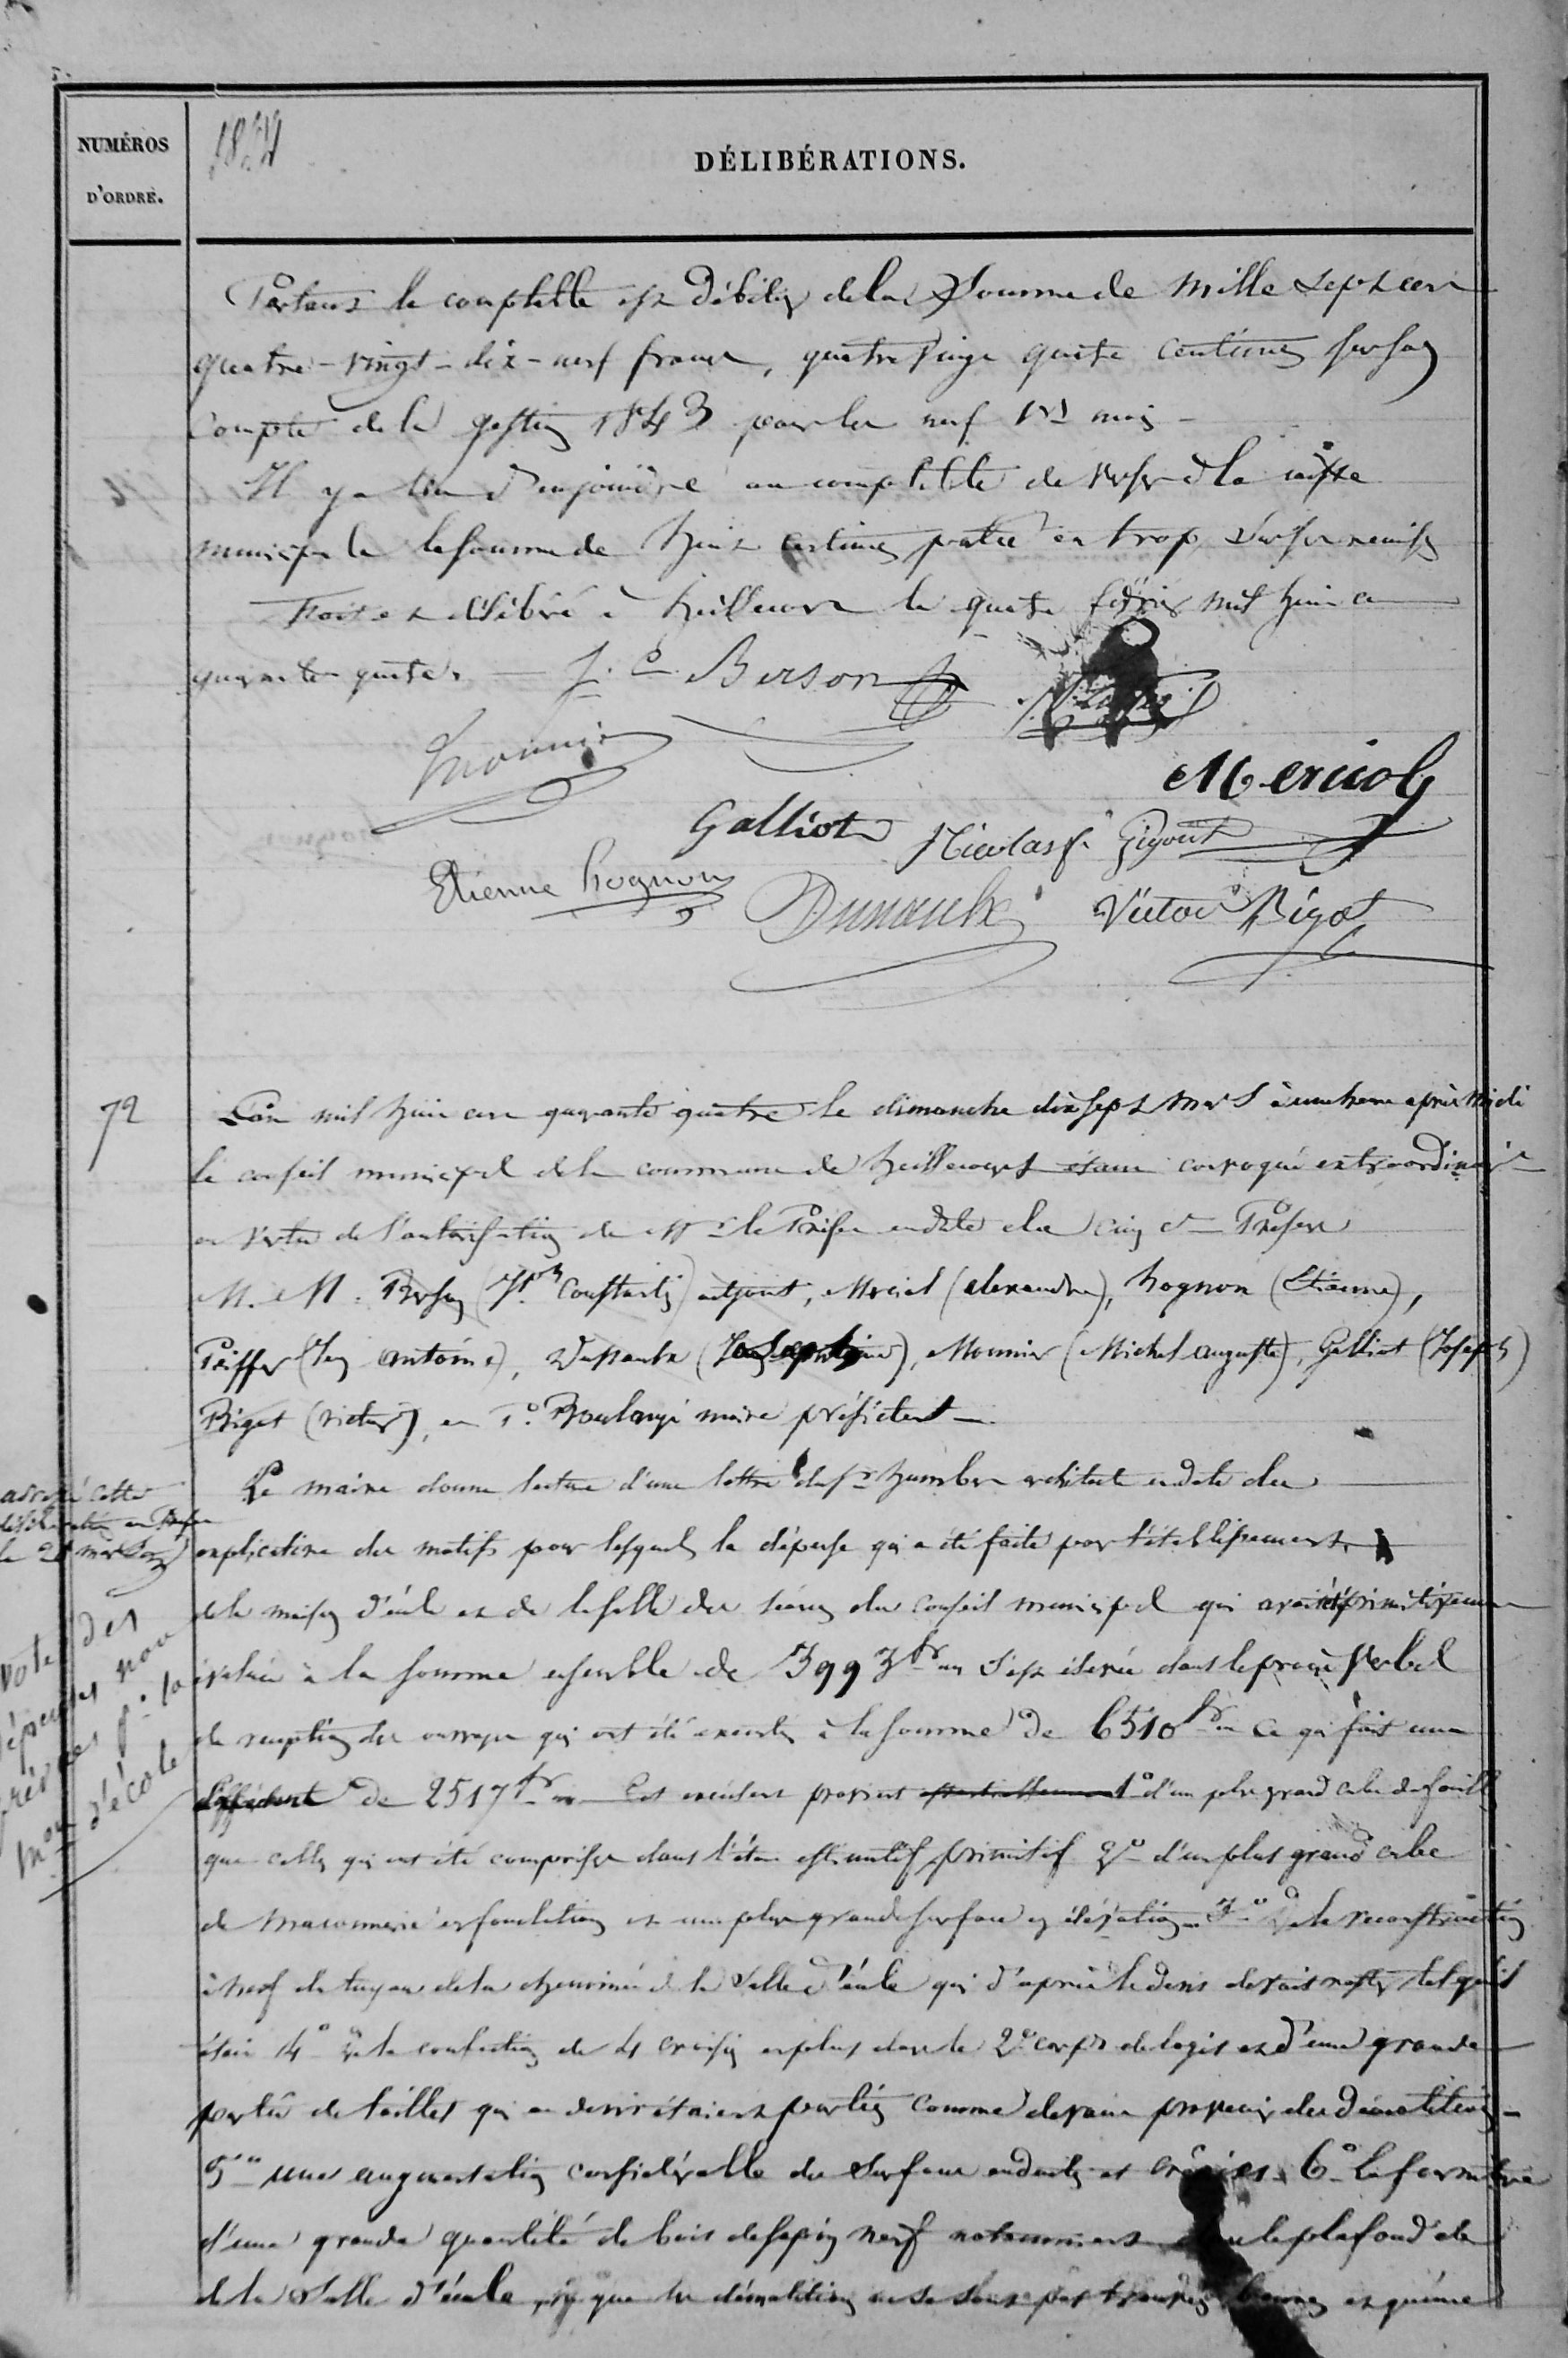 NUMÉROS
D'ORDRE.
DÉLIBÉRATIONS.
Partant le comptable est débiteur de la Somme de mille sept cent
quatre-vingt-dix-neuf francs, quatre vingt quatre centimes sur son
compte de la gestion 1843 pour les neuf 1ers mois -
Il y a lieu d'enjoindre au comptable de verser à la caisse
municipale la somme de huit centimes portée en trop sur ses remises
Fait et délibéré à heillecourt le quatre février mil huit cent
quarante quatre. J. C. Berson
Mounier
Merciol
Galliot Nicolas f. Gigout
Etienne hognon
Victor Bigot
72
L'an mil huit cent quarante quatre le dimanche dix sept mars à une heure après midi
le conseil municipal de la commune de heillecourt étant convoqué extraordinairt
en vertu de l'autorisation de Mr le Préfet en date du cinq ct Présents
M. M. Berson (Jh Constantin) adjoint, Merciol (alexandre), hognon (Etienne),
Piffer (Jean antoine), (Joseph), Mounier (Michel auguste), Galliot (Joseph)
Bigot (victor), et Boulangé maire président
Le maire donne lecture d'une lettre du Sr humbert architecte en date du
explicative des motifs pour lesquels la dépense qui a été faite pour l'établissement
de la maison d'école et de la salle des séances du conseil municipal qui avait été primitivement
évaluée à la somme ensemble de 3993 fr s'est élevée dans le procès verbal
de réception des ouvrages qui ont été exécutés à la somme de 6510 fr ce qui fait une
de 2517 fr Cet excédent provient 1° d'un plus grand cube de fouilles
que celles qui ont été comprises dans l'état estimatif primitif 2° d'un plus grand cube
de maconnerie en fondation et une plus grande surface en élévation 3° de la reconstruction
à neuf du tuyau de la cheminée de la salle d'école qui d'après le devis devait rester tel qu'il
était 4° de la confection de 4 croisées en plus dans le 2e corps de logis et d'une grande
partie de tailles qui au devis étaient portées comme devant provenir des démolitions -
5° une augmentation considérable de surface enduits et crépies 6° la fourniture
d'une grande quantité de bois de sapin neuf notamment le plafond de
de la salle d'école, que les démolitions ne se sont pas trouvées bonnes et qu'une
adressé cette
délibération au Préfet
le 21 mars
vote des
dépenses non
prévues pr la
mon d'école